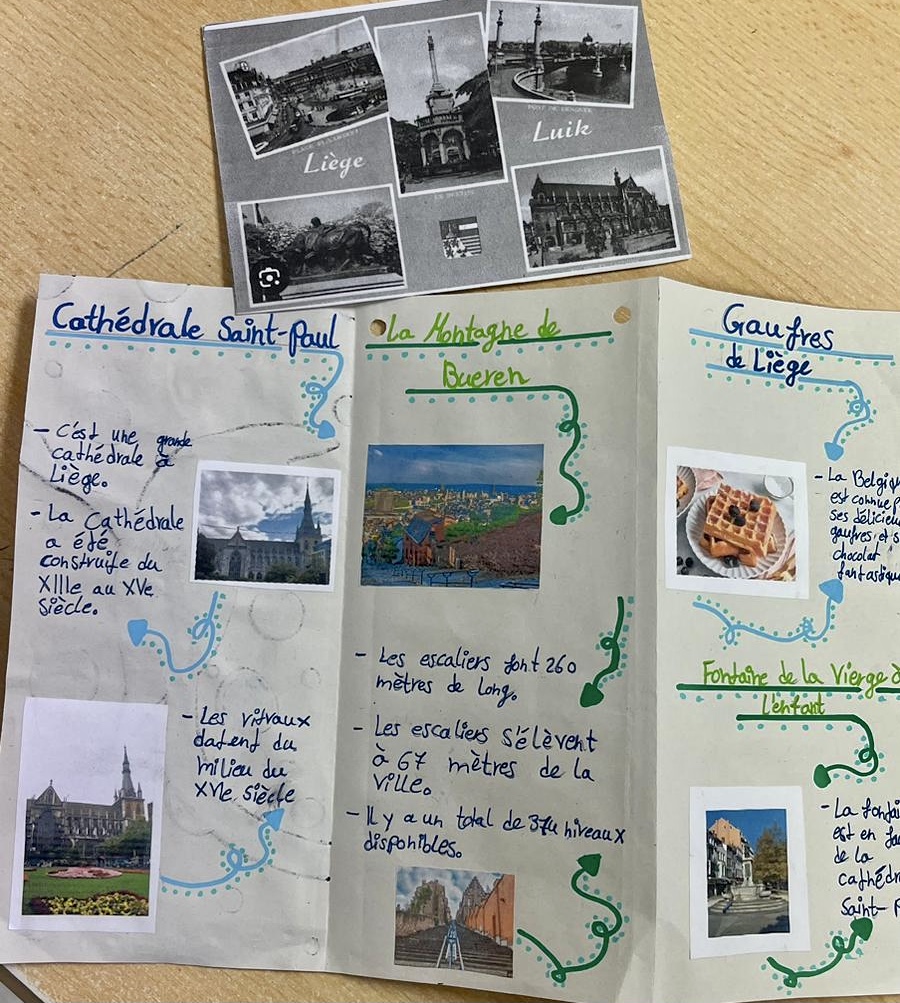 Liège
Luik
Cathédrale Saint-Paul
- C'est une grande
cathédrale à
Liège.
- La Cathédrale
a été
construite du
XIIIe au XVe
Siècle.
- Les vitraux
datent du
milieu du
XVIe siècle
La Montagne de
Bueren
- Les escaliers font 260
mètres de long.
- Les escaliers s'élèvent
à 67 mètres de la
ville.
- Il y a un total de 374 niveaux
disponibles.
Gaufres
de Liège
- La Belgiq
est connue p
ses délicieu
gaufres et s
chocolat
fantastique
Fontaine de la Vierge à
l'enfant
- La fontai
est en fa
de la
cathédr
Saint-P